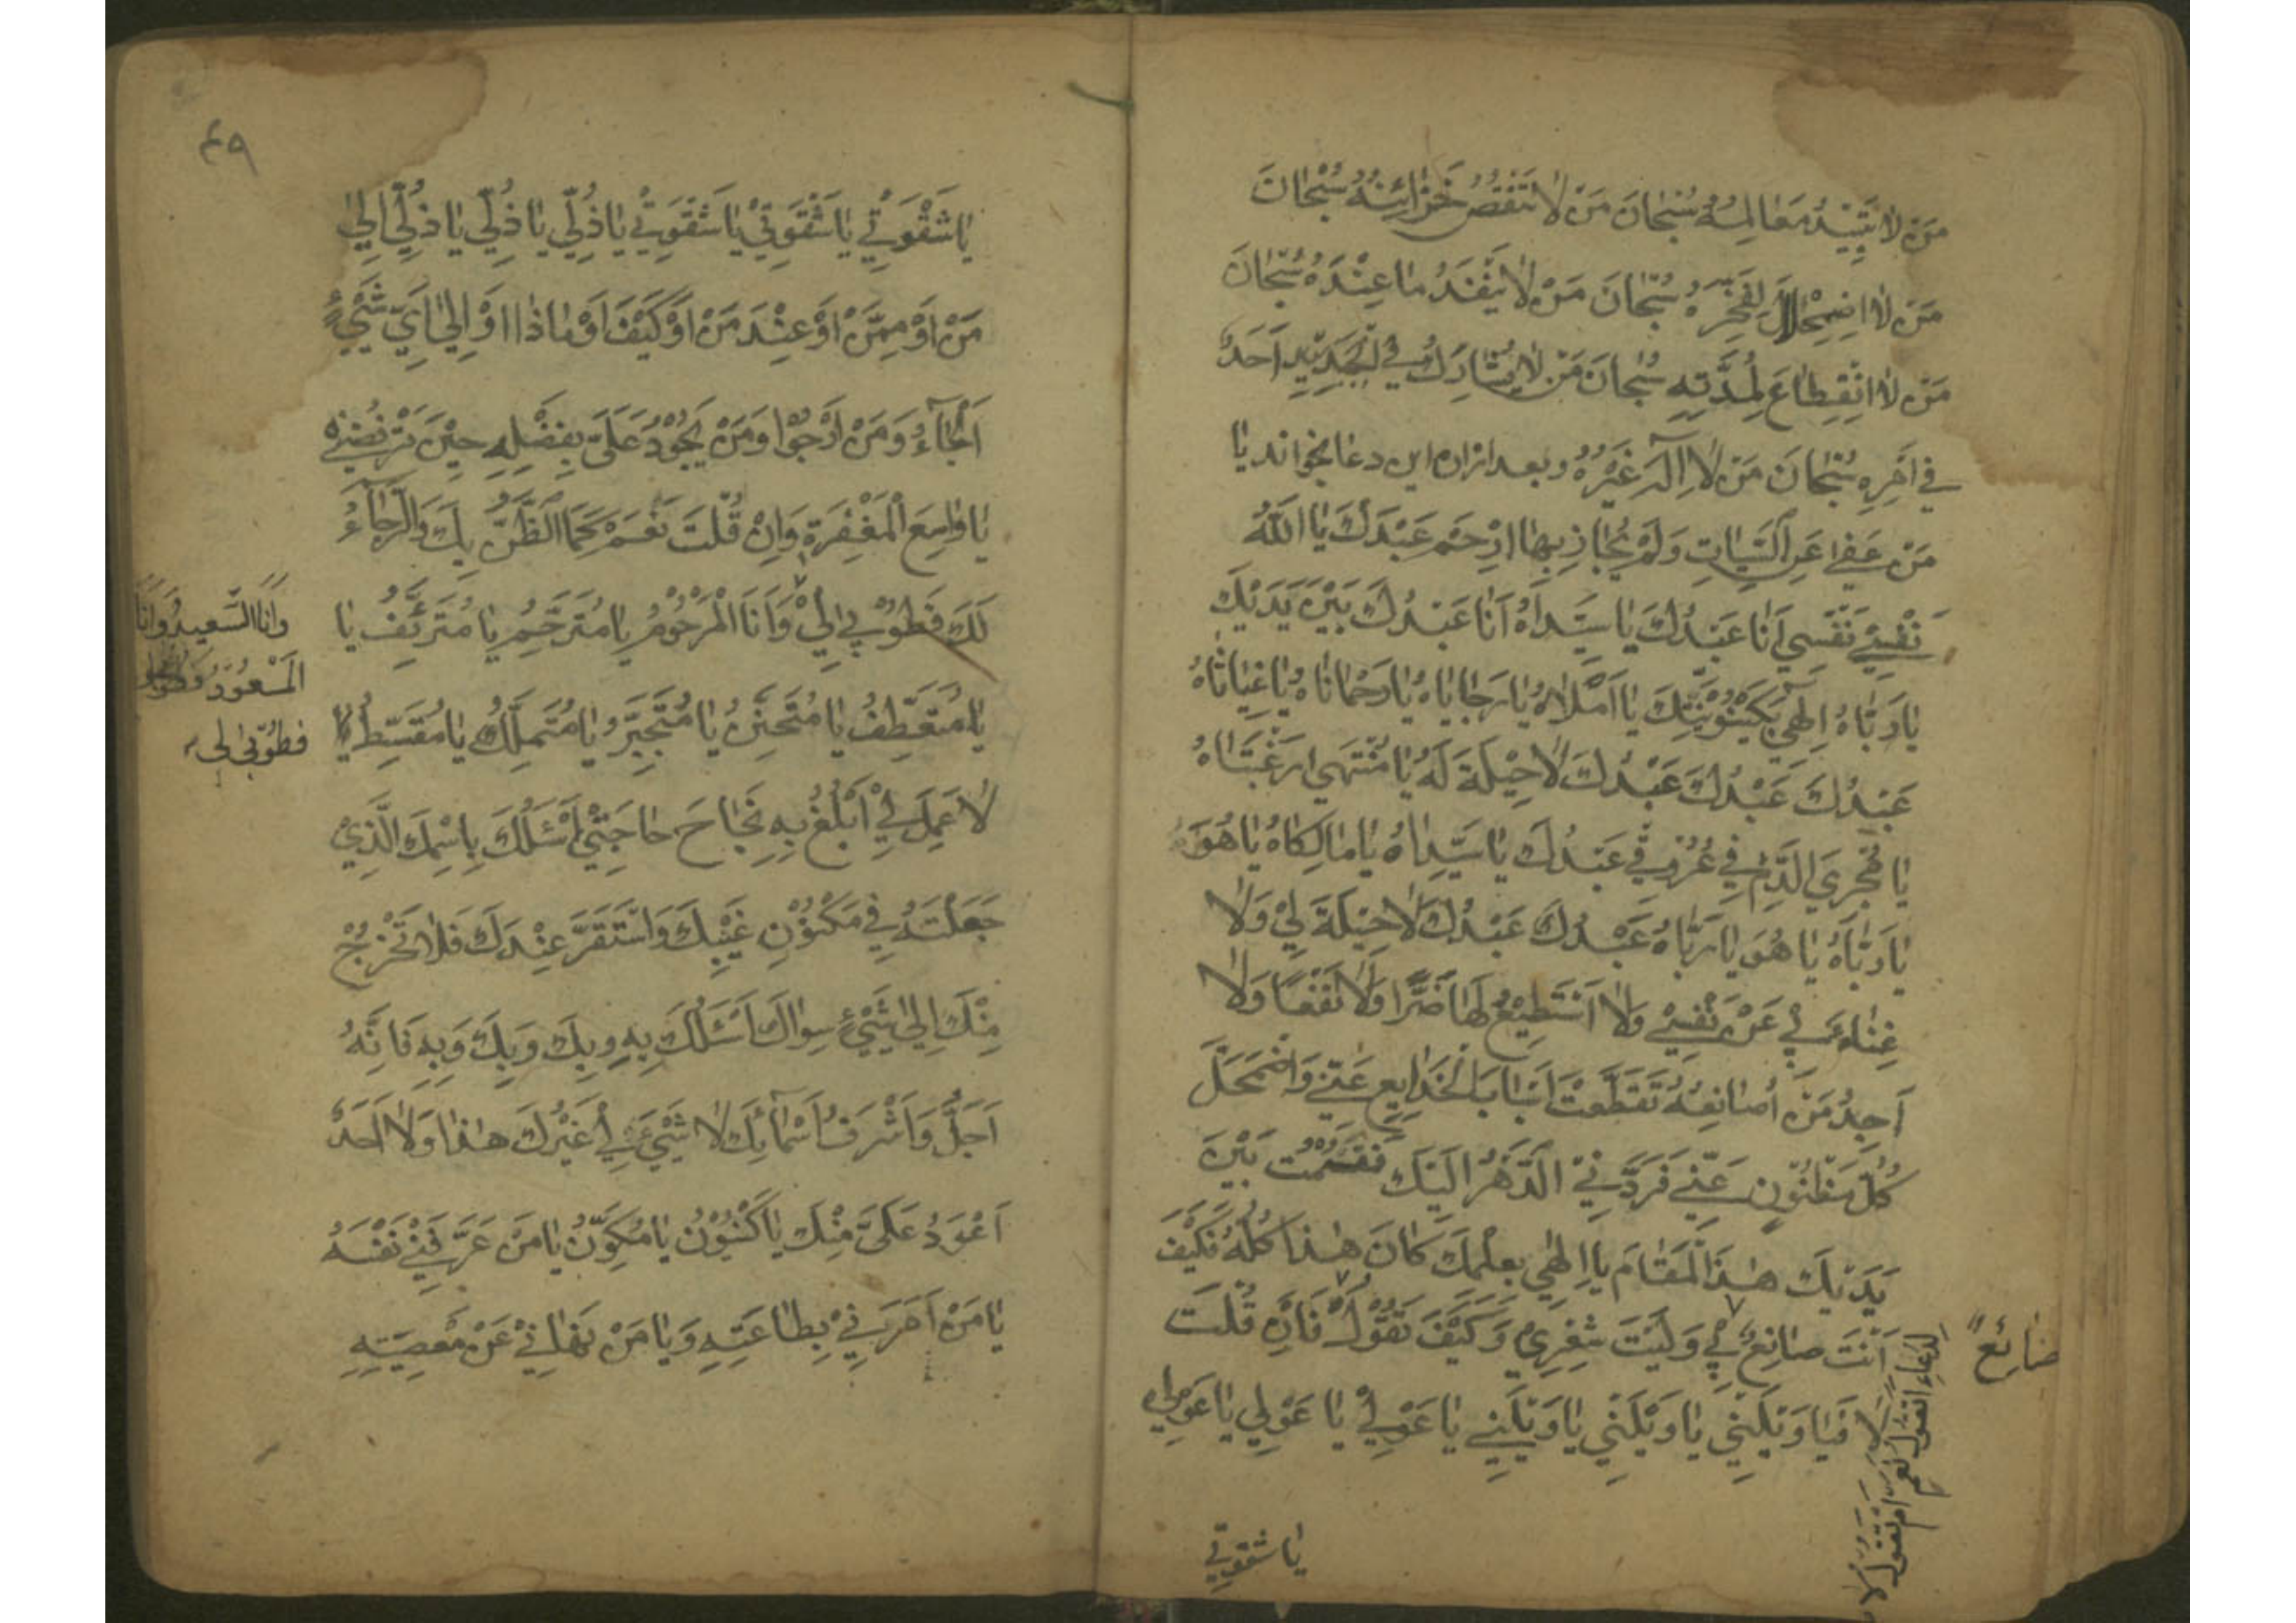 مَنْ لَا تَبِيْدُ مَعَالِمُهُ سُبْحَانَ مَنْ لَا تَنْقُصُ خَزَائِنُهُ سُبْحَانَ
مَنْ لَا اضْمِحْلَالَ لِفَخْرِهِ سُبْحَانَ مَنْ لَا يَنْفَدُ مَا عِنْدَهُ سُبْحَانَ
مَنْ لَا انْقِطَاعَ لِمُدَّتِهِ سُبْحَانَ مَنْ لَا يُشَارِكُ فِي اَحَدٌ
فِي اَمْرِهِ سُبْحَانَ مَنْ لَا اِلٰهَ غَيْرُهُ و بعد ازان این دعا بخواند يَا
مَنْ عَفٰى عَنِ السَّيِّاتِ وَلَمْ يُجَازِ بِهَا ارْحَمْ عَبْدَكَ يَا اَللّٰهُ
نَفْسِيْ نَفْسِي اَنَا عَبْدُكَ يَا سَيِّدَاهُ اَنَا عَبْدُكَ بَيْنَ يَدَيْكَ
يَا رَبَّاهُ اِلٰهِي بِكَيْنُوْنِيَّتِكَ يَا اَمَلَاهُ يَا رَجَايَاهُ يَا رَحْمَانَاهُ يَا غِيَاثَاهُ
عَبْدُكَ عَبْدُكَ عَبْدُكَ لَا حِيْلَةَ لَهُ يَا مُنْتَهٰى رَغْبَتَاهُ
يَا مُجْرِيَ الدَّمِ فِي عُرُوْقِي عَبْدُكَ يَا سَيِّدَاهُ يَا مَالِكَاهُ يَا هُوَ
يَا رَبَّاهُ يَا هُوَ يَا رَبَّاهُ عَبْدُكَ عَبْدُكَ لَا حِيْلَةَ لِيْ وَلَا
غِنَاءَ بِيْ عَنْ نَفْسِيْ وَلَا اَسْتَطِيْعُ لَهَا ضَرًّا وَلَا نَفْعًا وَلَا
اَجِدُ مَنْ اُصَانِعُهُ تَقَطَّعَتْ اَسْبَابُ الْخَدَايِعِ عَنِّيْ وَاضْمَحَلَّ
كُلُّ مَظْنُوْنٍ عَنِّيْ فَرَدَّنِيْ الدَّهْرُ اِلَيْكَ فَقُمْتُ بَيْنَ
يَدَيْكَ هٰذَا الْمَقَامَ يَا اِلٰهِي بِعِلْمِكَ كَانَ هٰذَا كُلُّهُ فَكَيْفَ
اَنْتَ صَانِعٌ بِيْ وَلَيْتَ شِعْرِيْ وَكَيْفَ تَقُوْلُ فَاِنْ قُلْتَ
ضَائِعٌ
لِدُعَاءِ اتَقُولُ نَعَمْ اَمْ تَقُولُ لَا
لَا فَيَا وَيْلَتِيْ يَا وَيْلَتِيْ يَا وَيْلَتِيْ يَا عَوْلِيْ يَا عَوْلِي يَا عَوْلِي
يَا شَقْوَتِي
٤٩
يَا شَقْوَتِيْ يَا شَقْوَتِيْ يَا شَقْوَتِيْ يَا ذُلِّي يَا ذُلِّي يَا ذُلِّي اِلٰى
مَنْ اَوْ مِمَّنْ اَوْ عِنْدَ مَنْ اَوْ كَيْفَ اَوْ مَاذَا اَوْ اِلٰى اَيِّ شَيْءٍ
اَلْجَاءُ وَمَنْ اَرْجُوْا وَمَنْ يَجُوْدُ عَلَيَّ بِفَضْلِهِ حِيْنَ تَرْفُضُنِي
يَا وَاسِعَ الْمَغْفِرَةِ وَاِنْ قُلْتَ نَعَمْ كَمَا الظَّنُّ بِكَ وَالرَّجَاءُ
لَكَ فَطُوْبٰى لِيْ وَاَنَا الْمَرْحُوْمُ يَا مُتَرَحِّمُ يَا مُتَرَئِّفُ يَا
وَاَنَا السَّعِيدُ وَاَنَا
الْمَسْعُوْدُ
فطُوْبٰى لِي
يَا مُتَعَطِّفُ يَا مُتَحَنِّنُ يَا مُتَجَبِّرُ يَا مُتَمَلِّكُ يَا مُقَسِّطُ
لَا عَمَلَ لِيْ اَبْلُغُ بِهِ نَجَاحَ حَاجَتِيْ اَسْئَلُكَ بِاسْمِكَ الَّذِيْ
جَعَلْتَهُ فِي مَكْنُوْنِ غَيْبِكَ وَاسْتَقَرَّ عِنْدَكَ فَلَا يَخْرُجُ
مِنْكَ اِلٰى شَيْءٍ سِوَاكَ اَسْئَلُكَ بِهِ وَبِكَ وَبِكَ وَبِهِ فَاِنَّهُ
اَجَلُّ وَاَشْرَفُ اَسْمَائِكَ لَا شَيْءَ لِيْ غَيْرُكَ هٰذَا وَلَا اَحَدَ
اَعْوَدُ عَلَيَّ مِنْكَ يَا كَيْنُوْنُ يَا مُكَوِّنُ يَا مَنْ عَرَّفَنِيْ نَفْسَهُ
يَا مَنْ اَمَرَنِيْ بِطَاعَتِهِ وَيَا مَنْ نَهَانِيْ عَنْ مَعْصِيَتِهِ